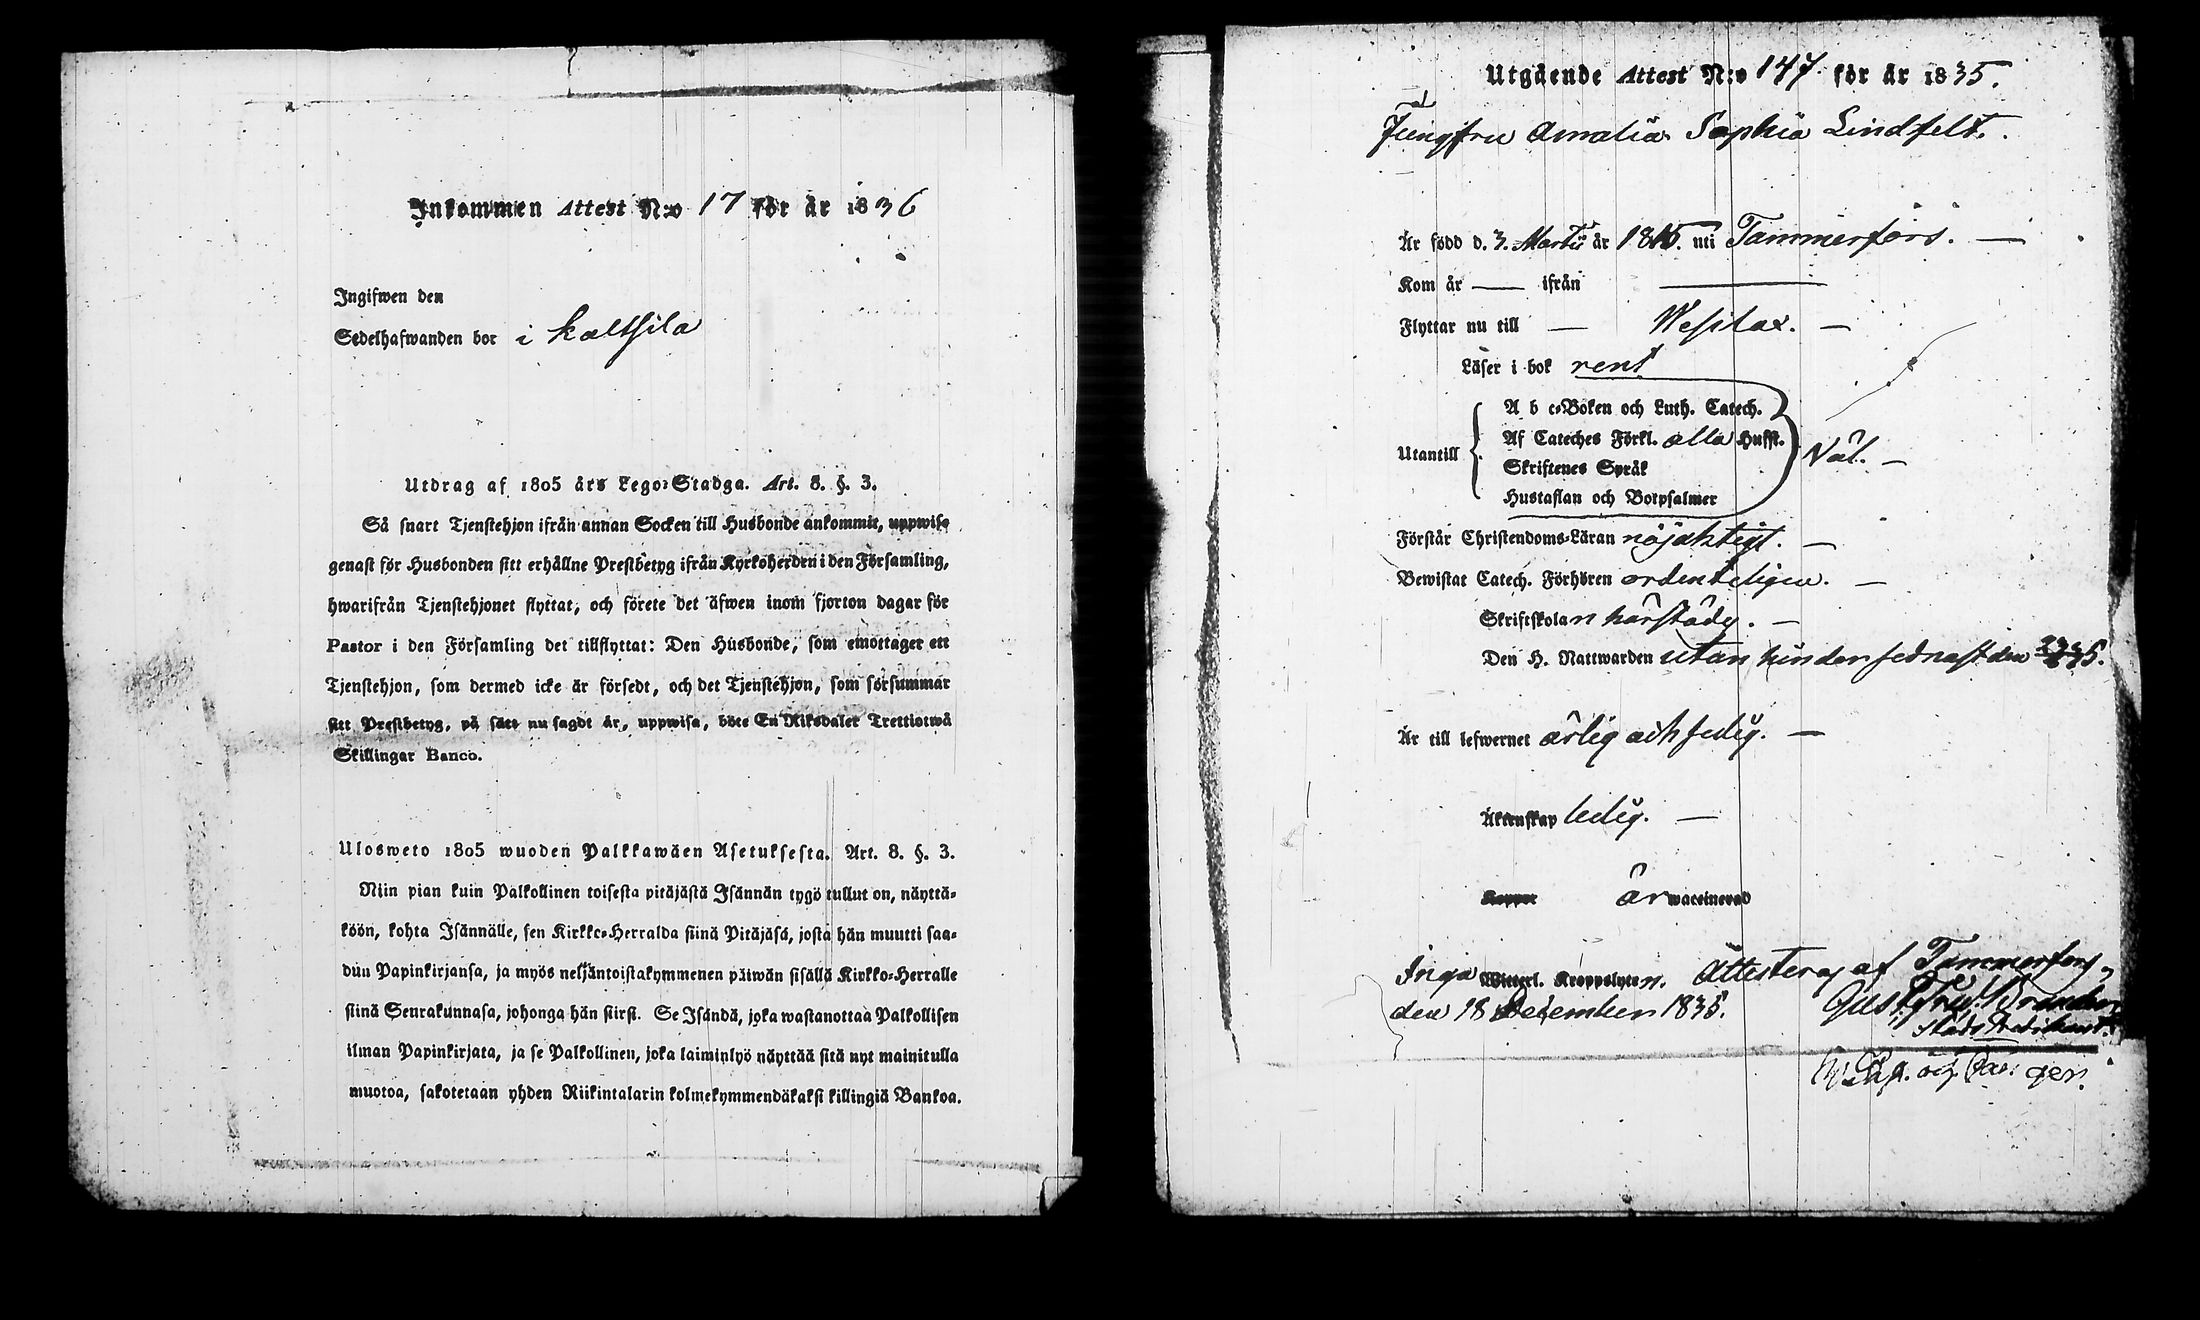 Inkommen Attest N:o 17 för år 1836
Ingifwen den
Sedelhafwanden bor i Kaltsila
Utdrag af 1805 års Lego-Stadga. Art. 8. §. 3.
Så snart Tjenstehjon ifrån annan Socken till Husbonde ankommit, uppwise
genast för Husbonden sitt erhållne Prestbetyg ifrån Kyrkoherden i den Församling,
hwarifrån Tjenstehjonet flyttat, och förete det äfwen inom fjorton dagar för
Pastor i den Församling det tillflyttat: Den Husbonde, som emottager ett
Tjenstehjon, som dermed icke är försedt, och det Tjenstehjon, som försummar
sitt Prestbetyg, på sätt nu sagdt är, uppwisa, böte En Riksdaler Trettiotwå
Skillingar Banco.
Ulosweto 1805 wuoden Palkkawäen Asetuksesta. Art. 8. §. 3.
Niin pian kuin Palkollinen toisesta pitäjästä Isännän tygö tullut on, näyttä-
köön, kohta Isännälle, sen Kirkko-Herralda siinä Pitäjäsä, josta hän muutti saa-
dun Papinkirjansa, ja myös neljäntoistakymmenen päiwän sisällä Kirkko-Herralle
siinä Seurakunnasa, johonga hän siirsi. Se Isändä, joka wastanottaa Palkollisen
ilman Papinkirjata, ja se Palkollinen, joka laiminlyö näyttää sitä nyt mainitulla
muotoa, sakotetaan yhden Riikintalarin kolmekymmendäkaksi killingiä Bankoa.
Utgående Attest N:o 147 för år 1835.
Jungfru Amalia Sophia Lindfelt.
Är född d. 3. Martii år 1815. uti Tammerfors. —
Kom år — ifrån —
Flyttar nu till — Wesilax. —
Läser i bok rent
A b c-Boken och Luth. Catech.
Af Cateches Förkl. alla Hufst.
Utantill Väl. —
Skriftenes Språk
Hustaflan och Botpsalmer
Förstår Christendoms-Läran nöjaktigt. —
Bewistat Catech. Förhören ordenteligen. —
Skriftskolan härstädes. —
Den H. Nattwarden utan hinder sednast den
Är till lefwernet ärlig och sedig. —
Äktenskap ledig. —
Koppor är waccinerad
Inga Witterl. Kroppslyten. Attesteras af Tammerfors,
den 18 December 1835. Gust. Fred.
Stads Predikant.